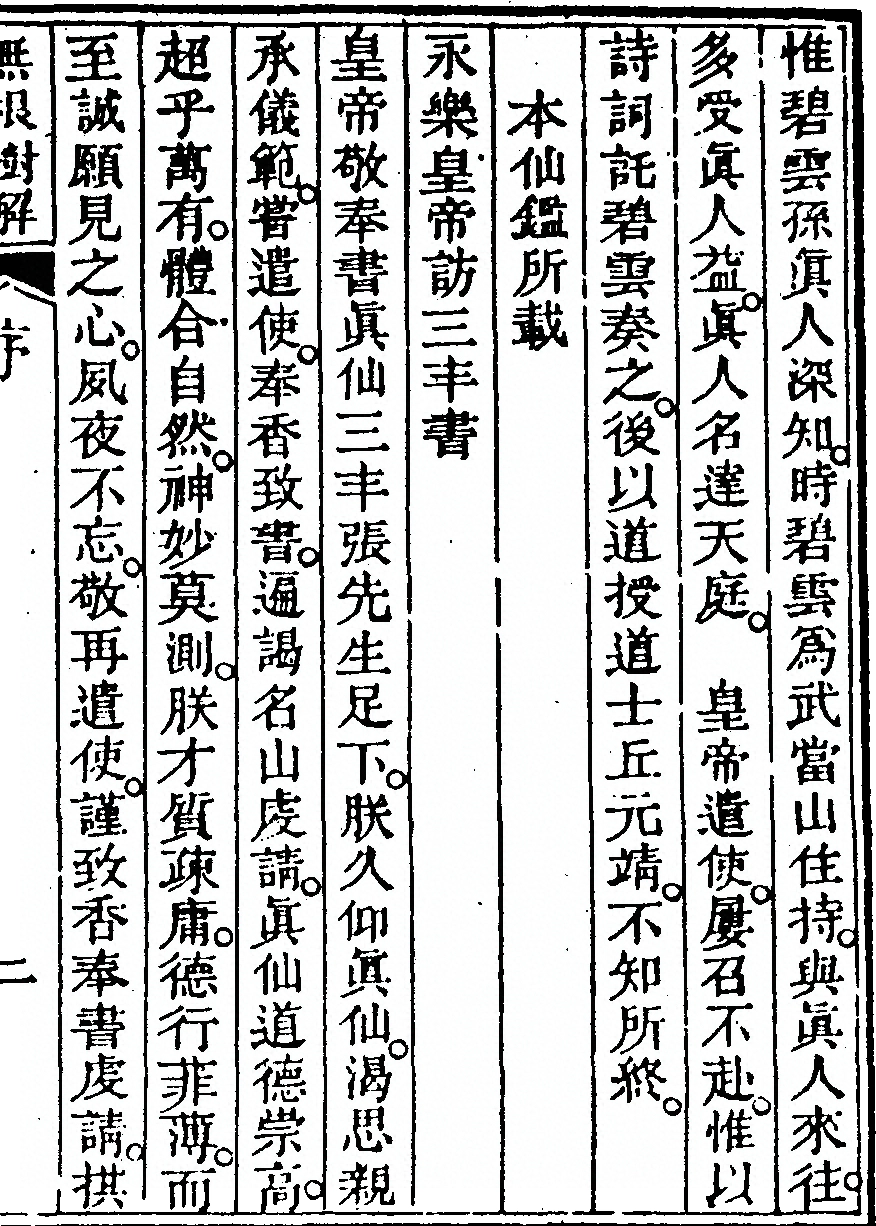 惟碧雲孫眞人深知。時碧雲爲武當山住持。與眞人來往。
多受眞人益。眞人名達天庭。　皇帝遣使。屢召不赴。惟以
詩詞託碧雲奏之。後以道授道士丘元靖。不知所終。
　本仙鑑所載
永樂皇帝訪三丰書
皇帝敬奉書眞仙三丰張先生足下。朕久仰眞仙。渴思親
承儀範。嘗遣使。奉香致書。遍謁名山虔請。眞仙道德崇高。
超乎萬有。體合自然。神妙莫測。朕才質疎庸。德行菲薄。而
至誠願見之心。夙夜不忘。敬再遣使。謹致香奉書虔請。拱
無根樹解　序　二